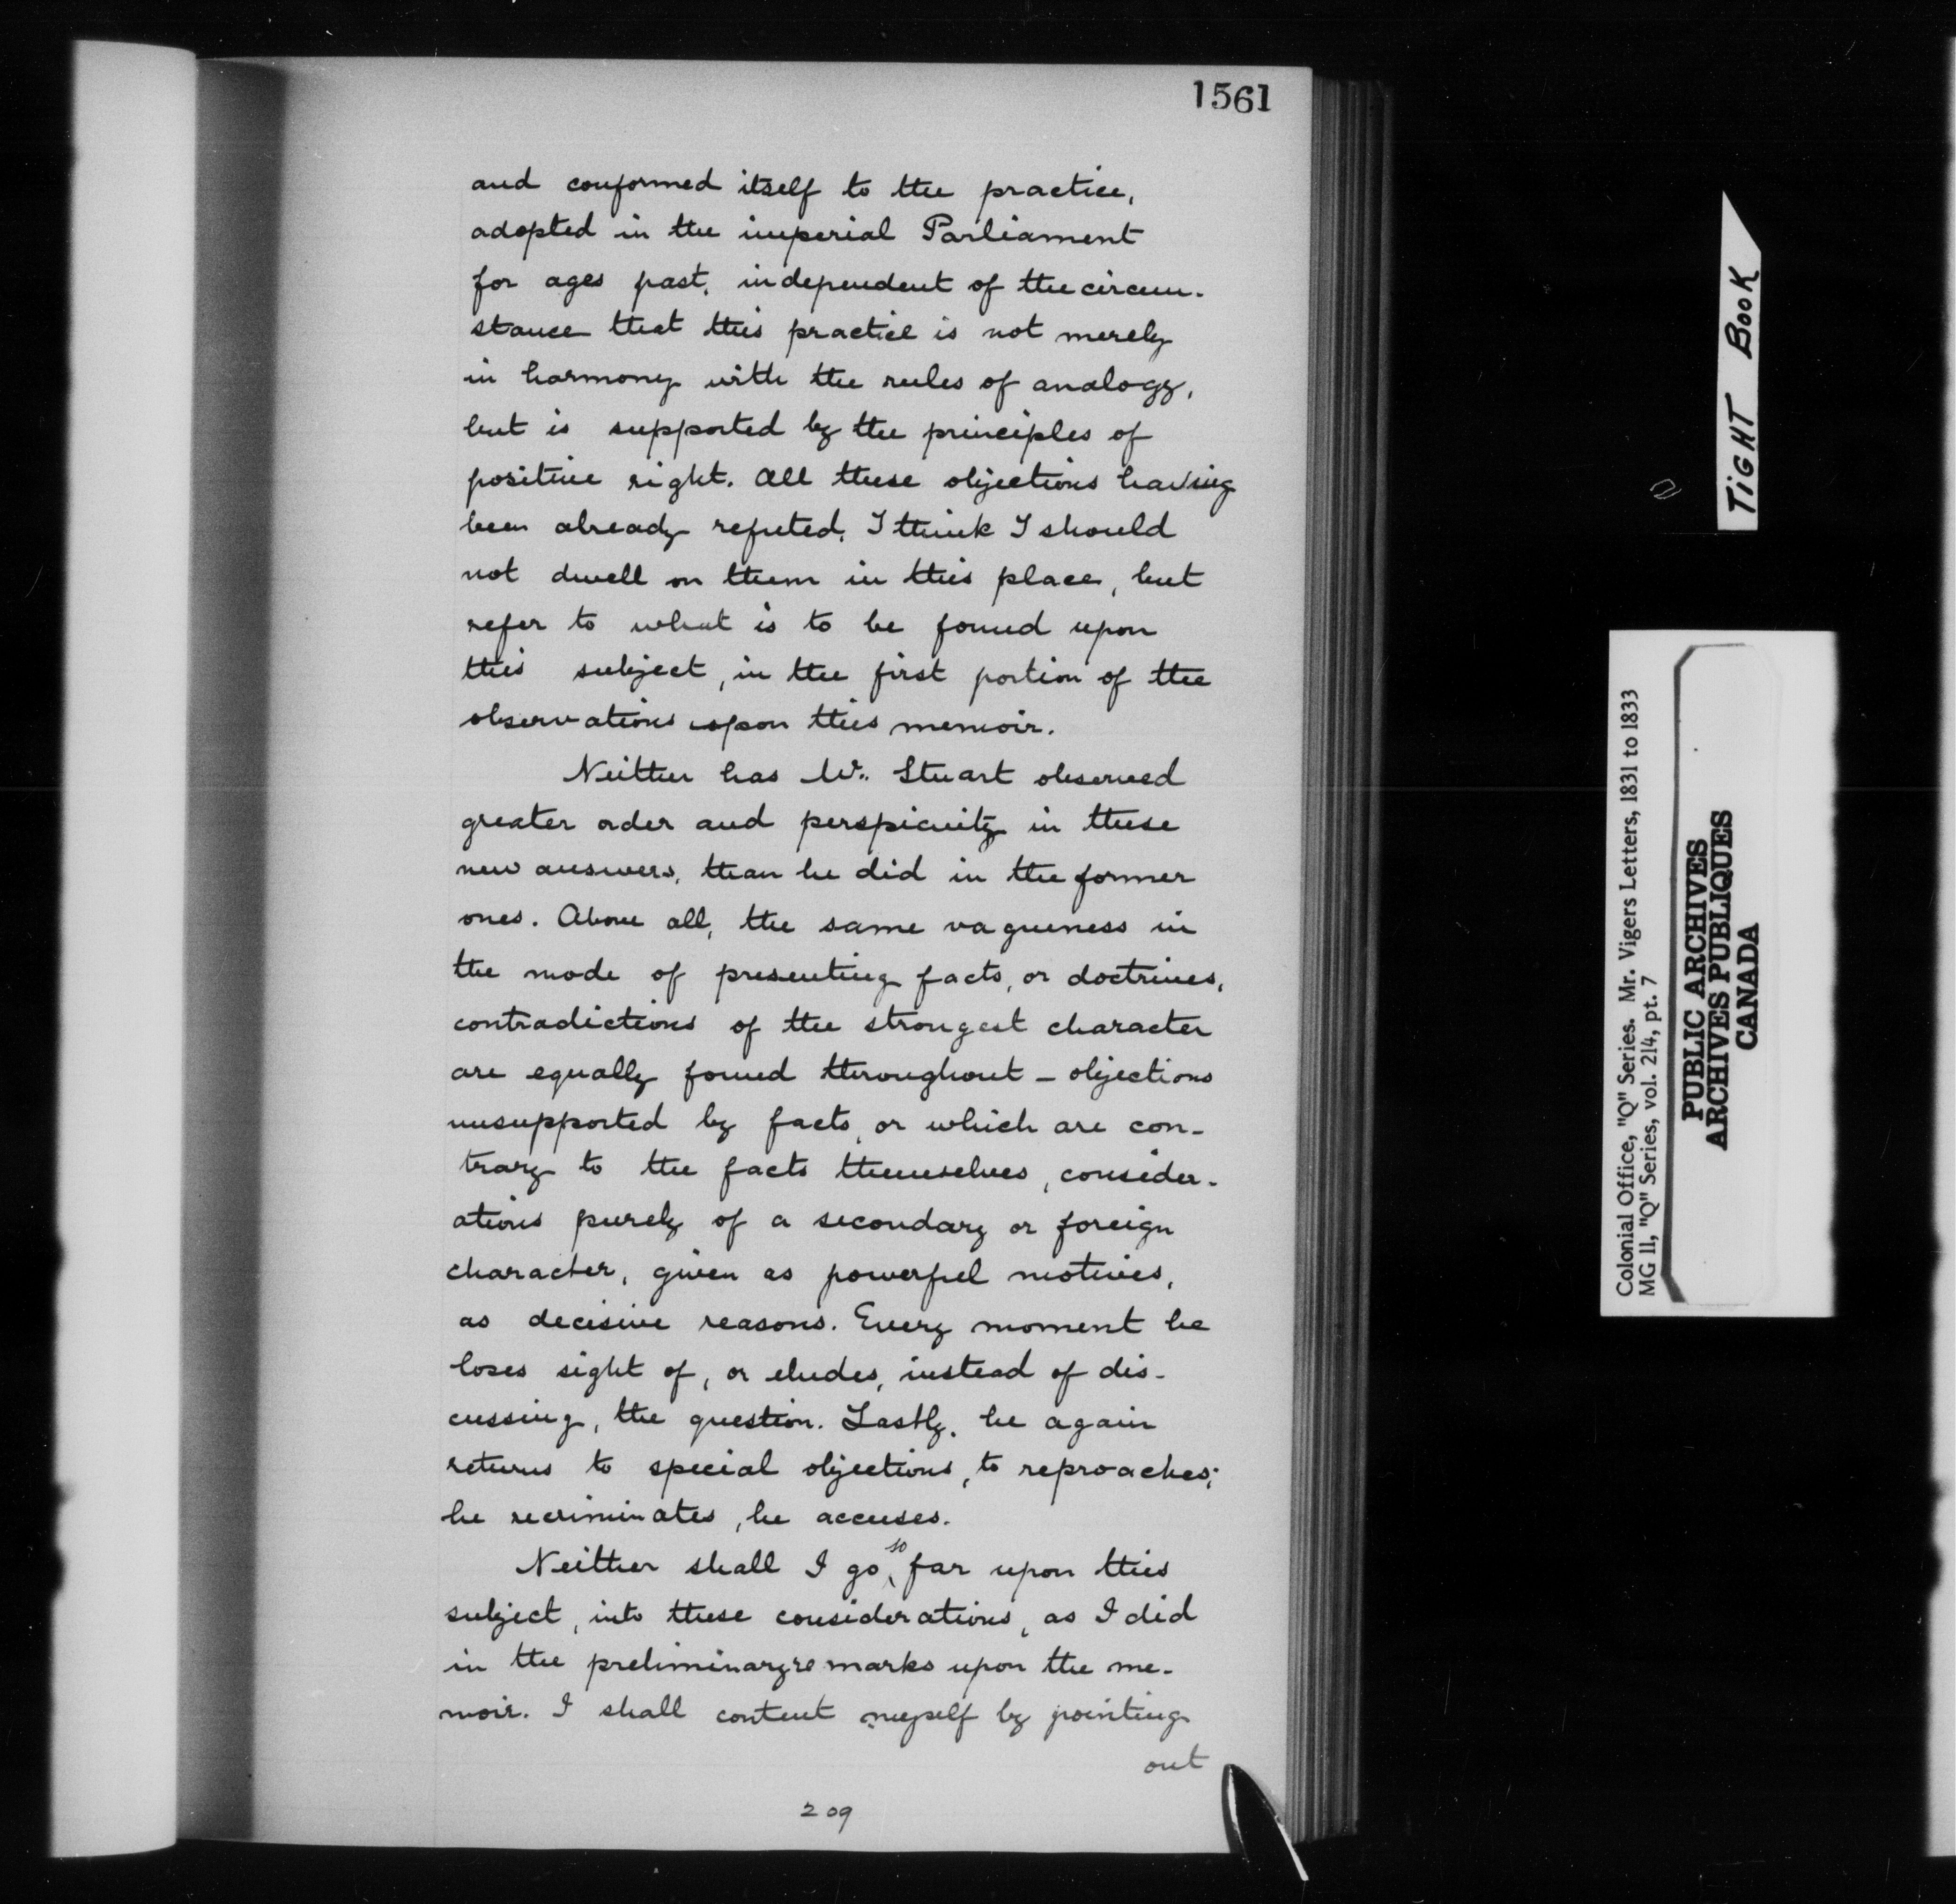 1561
and conformed itself to the practice,
adopted in the imperial Parliament
for ages past, independent of the circum-
stance that this practice is not merely
in harmony with the rules of analogy,
but is supported by the principles of
positive right. All these objections having
been already refuted, I think I should
not dwell on them in this place, but
refer to what is to be found upon
this subject, in the first portion of the
observations upon this memoir.
Neither has Mr. Stuart observed
greater order and perspicuity in these
new answers, than he did in the former
ones. Above all, the same vagueness in
the mode of presenting facts, or doctrines,
contradictions of the strongest character
are equally found throughout – objections
unsupported by facts, or which are con-
trary to the facts themselves, consider-
ations purely of a secondary or foreign
character, given as powerful motives,
as decisive reasons. Every moment he
loses sight of, or eludes, instead of dis-
cussing, the question. Lastly, he again
returns to special objections, to reproaches;
he recriminates, he accuses.
Neither shall I go so far upon this
subject, into these considerations, as I did
in the preliminary remarks upon the me-
moir. I shall content myself by pointing
out
209
TiGHT BOOK
Colonial Office, "Q" Series. Mr. Vigers Letters, 1831 to 1833
MG 11, "Q" Series, vol. 214, pt. 7
PUBLIC ARCHIVES
ARCHIVES PUBLIQUES
CANADA